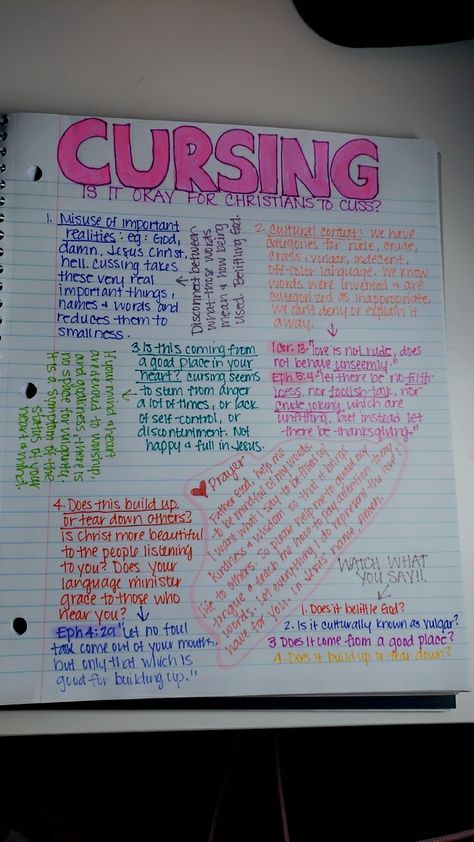 CURSING
IS IT OKAY FOR CHRISTIANS TO CUSS?
1. Misuse of important
realities: eg: God,
damn, Jesus Christ,
hell. Cussing takes
these very real
important things,
names & words and
reduces them to
smallness.
Disconnect between
what those words
mean & how being
used. Belittling God.
2. Cultural context: we have
categories for rude, crude,
crass, vulgar, indecent,
off-color language. We know
words were invented & are
categorized as inappropriate,
we can't deny or explain it
away.
1 Cor. 13- "love is not rude, does
not behave unseemly."
Eph 5:4- "let there be no filth-
iness, nor foolish talk, nor
crude joking, which are
unfitting, but instead let
there be thanksgiving."
3. Is this coming from
a good place in your
heart? Cursing seems
to stem from anger
a lot of times, or lack
of self-control, or
discontentment. Not
happy & full in Jesus.
If your mind & heart
are tuned to worship,
and gladness, there is
no space for vulgarity,
It's a symptom of the
status of your
heart & mind.
4. Does this build up
or tear down others?
Is Christ more beautiful
to the people listening
to you? Does your
language minister
grace to those who
hear you?
Eph 4:29 "Let no foul
talk come out of your mouths,
but only that which is
good for building up."
Prayer
Father God, help me
to be mindful of my words.
I want what I say to be filled w/
kindness & wisdom so that it brings
life to others. So please help me to guard my
tongue & teach me how to pay attention to my
words. Let everything I do represent the love I
have for you. In Jesus' name, Amen.
WATCH WHAT
YOU SAY!!
1. Does it belittle God?
2. Is it culturally known as vulgar?
3 Does it come from a good place?
4. Does it build up or tear down?